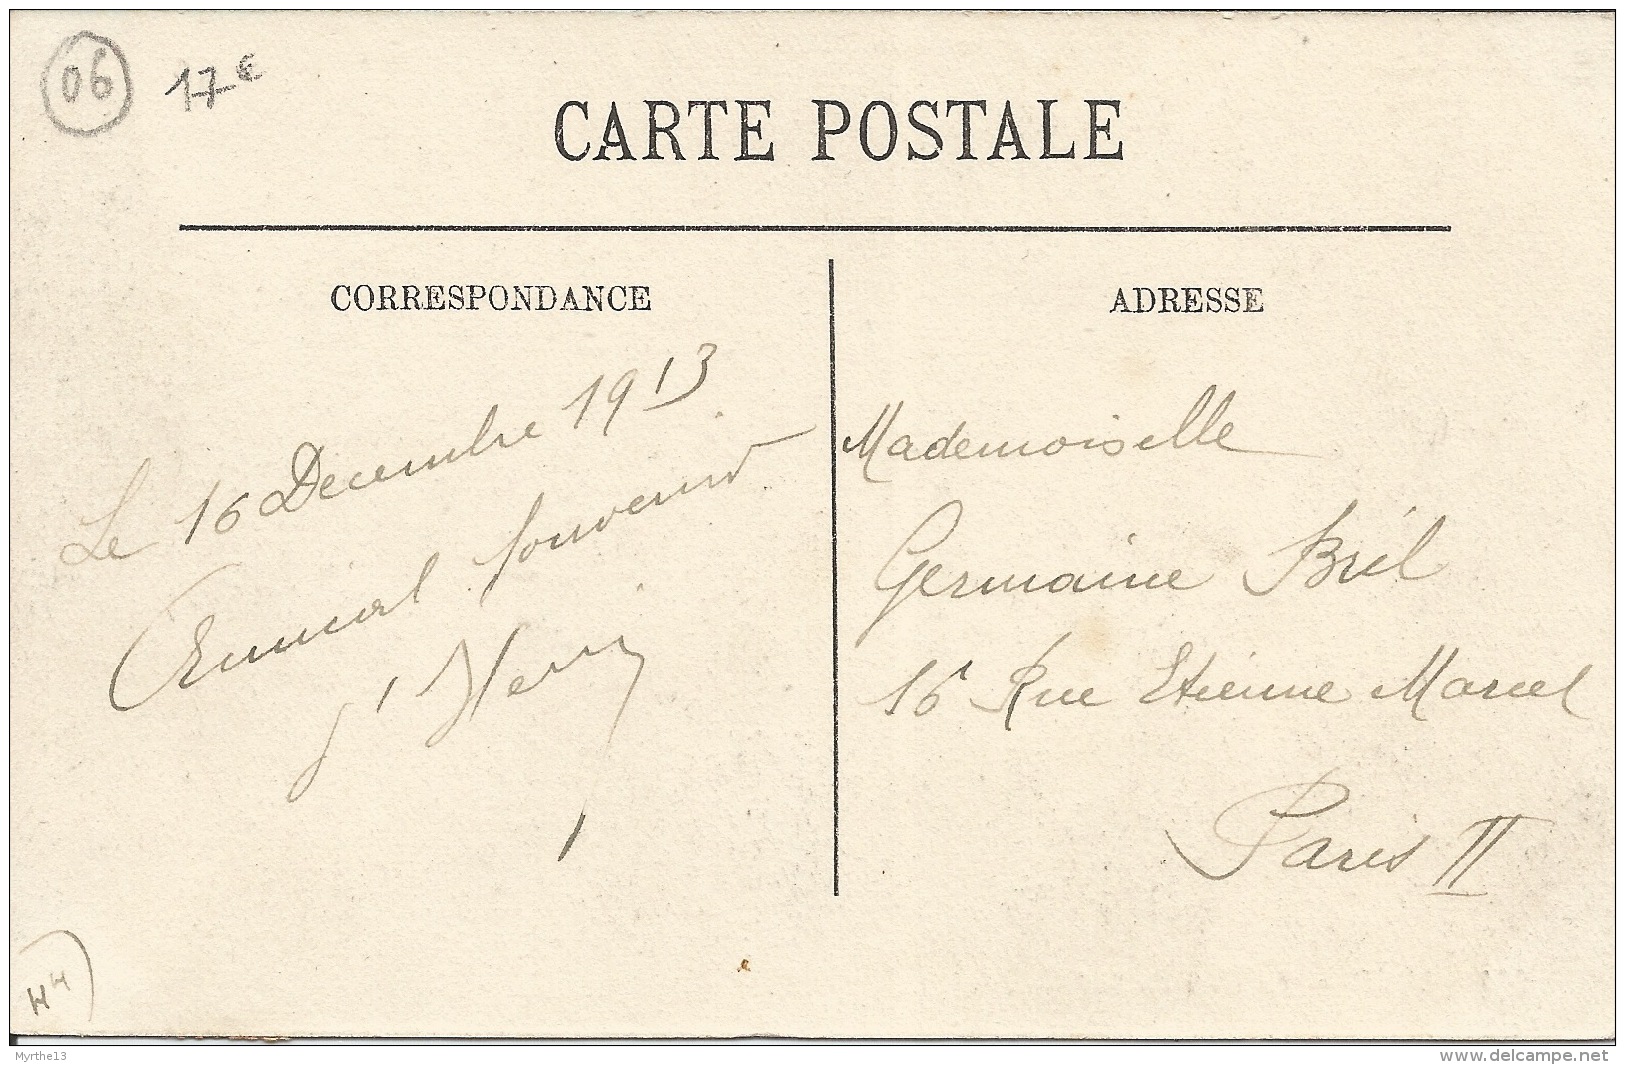 06
17€
CARTE POSTALE
CORRESPONDANCE
Le 16 Decembre 1913.
Amical souvenir
Henri
ADRESSE
Mademoiselle
Germaine Bril
16 Rue Etienne Marcel
Paris II
Myrthe13
www.delcampe.net